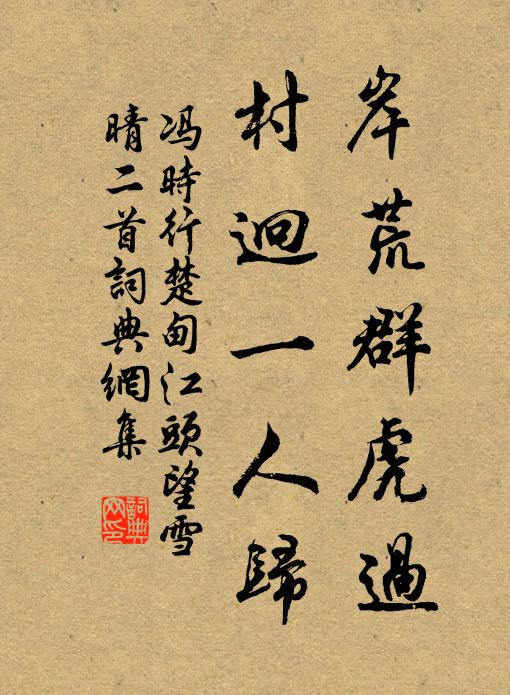 岸荒群虎過
村迥一人歸
馮時行楚甸江頭望雪
晴二首詞典網集
詞典网印